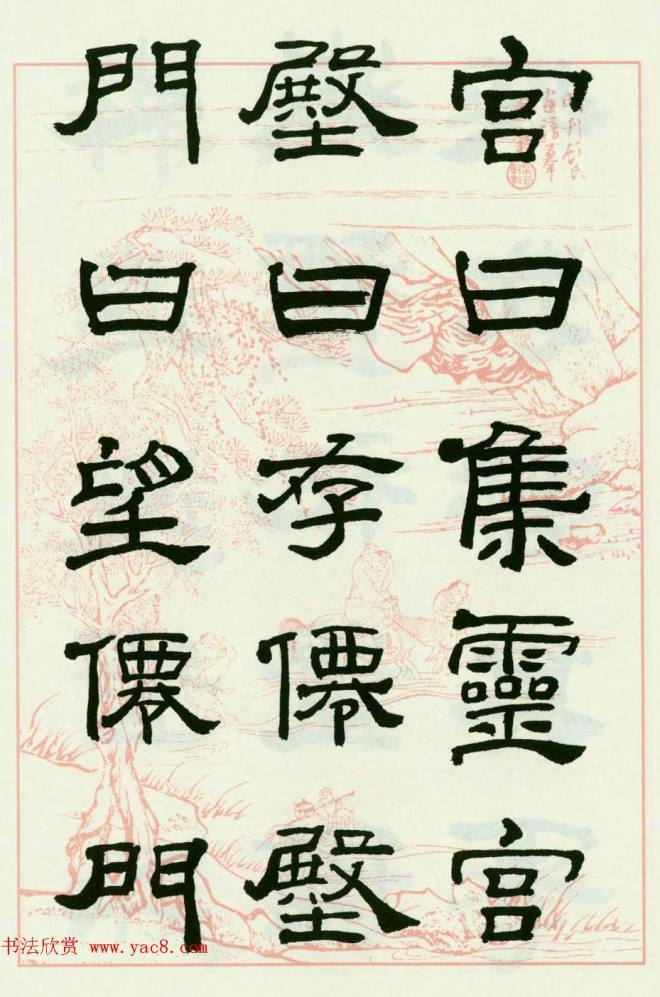 宮曰集靈宮
壂曰存僊壂
門曰望僊門
书法欣赏 www.yac8.com